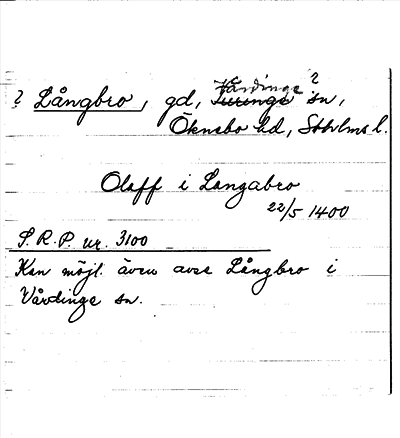 ? Långbro, gd, Vårdinge ? Turinge sn,
Öknebo hd, Sthlms l.
Olaff i Langabro
22/5 1400
S.R.P. nr. 3100
Kan möjl. även avse Långbro i
Vårdinge sn.